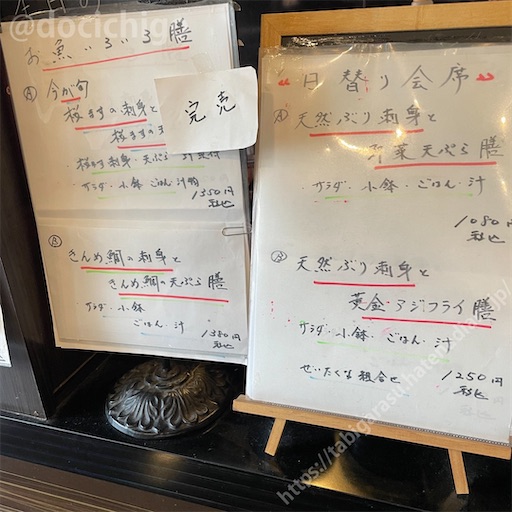 @docichig
お魚いろいろ膳
Ⓐ 今が旬
桜ますの刺身と
桜ますの天
完売
桜ます刺身・天ぷら
・サラダ・小鉢・ごはん・汁物
1350円
税込
Ⓑ
きんめ鯛の刺身と
きんめ鯛の天ぷら膳
・サラダ・小鉢
・ごはん・汁
1380円
税込
日替り会席
Ⓐ 天然ぶり刺身と
野菜天ぷら膳
・サラダ・小鉢・ごはん・汁
1080円
税込
Ⓑ 天然ぶり刺身と
黄金アジフライ膳
・サラダ・小鉢・ごはん・汁
ぜいたくな組合せ
1250円
税込
https://tabigarasu.hatenablog.jp/